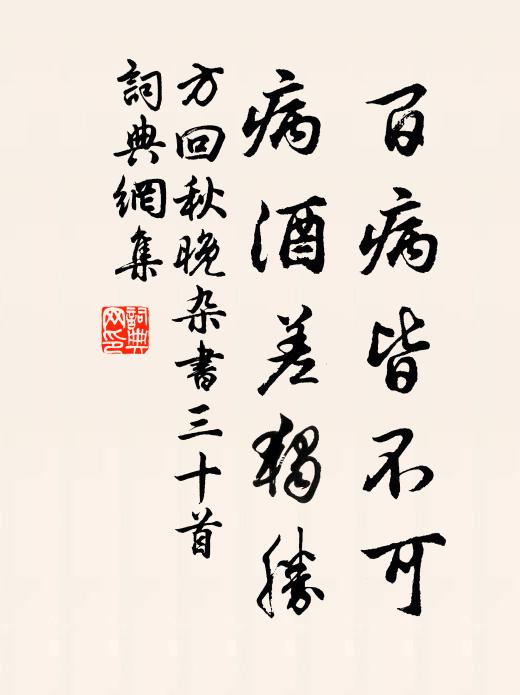 百病皆不可
病酒差独勝
方回秋晚杂書三十首
詞典網集
詞典网印